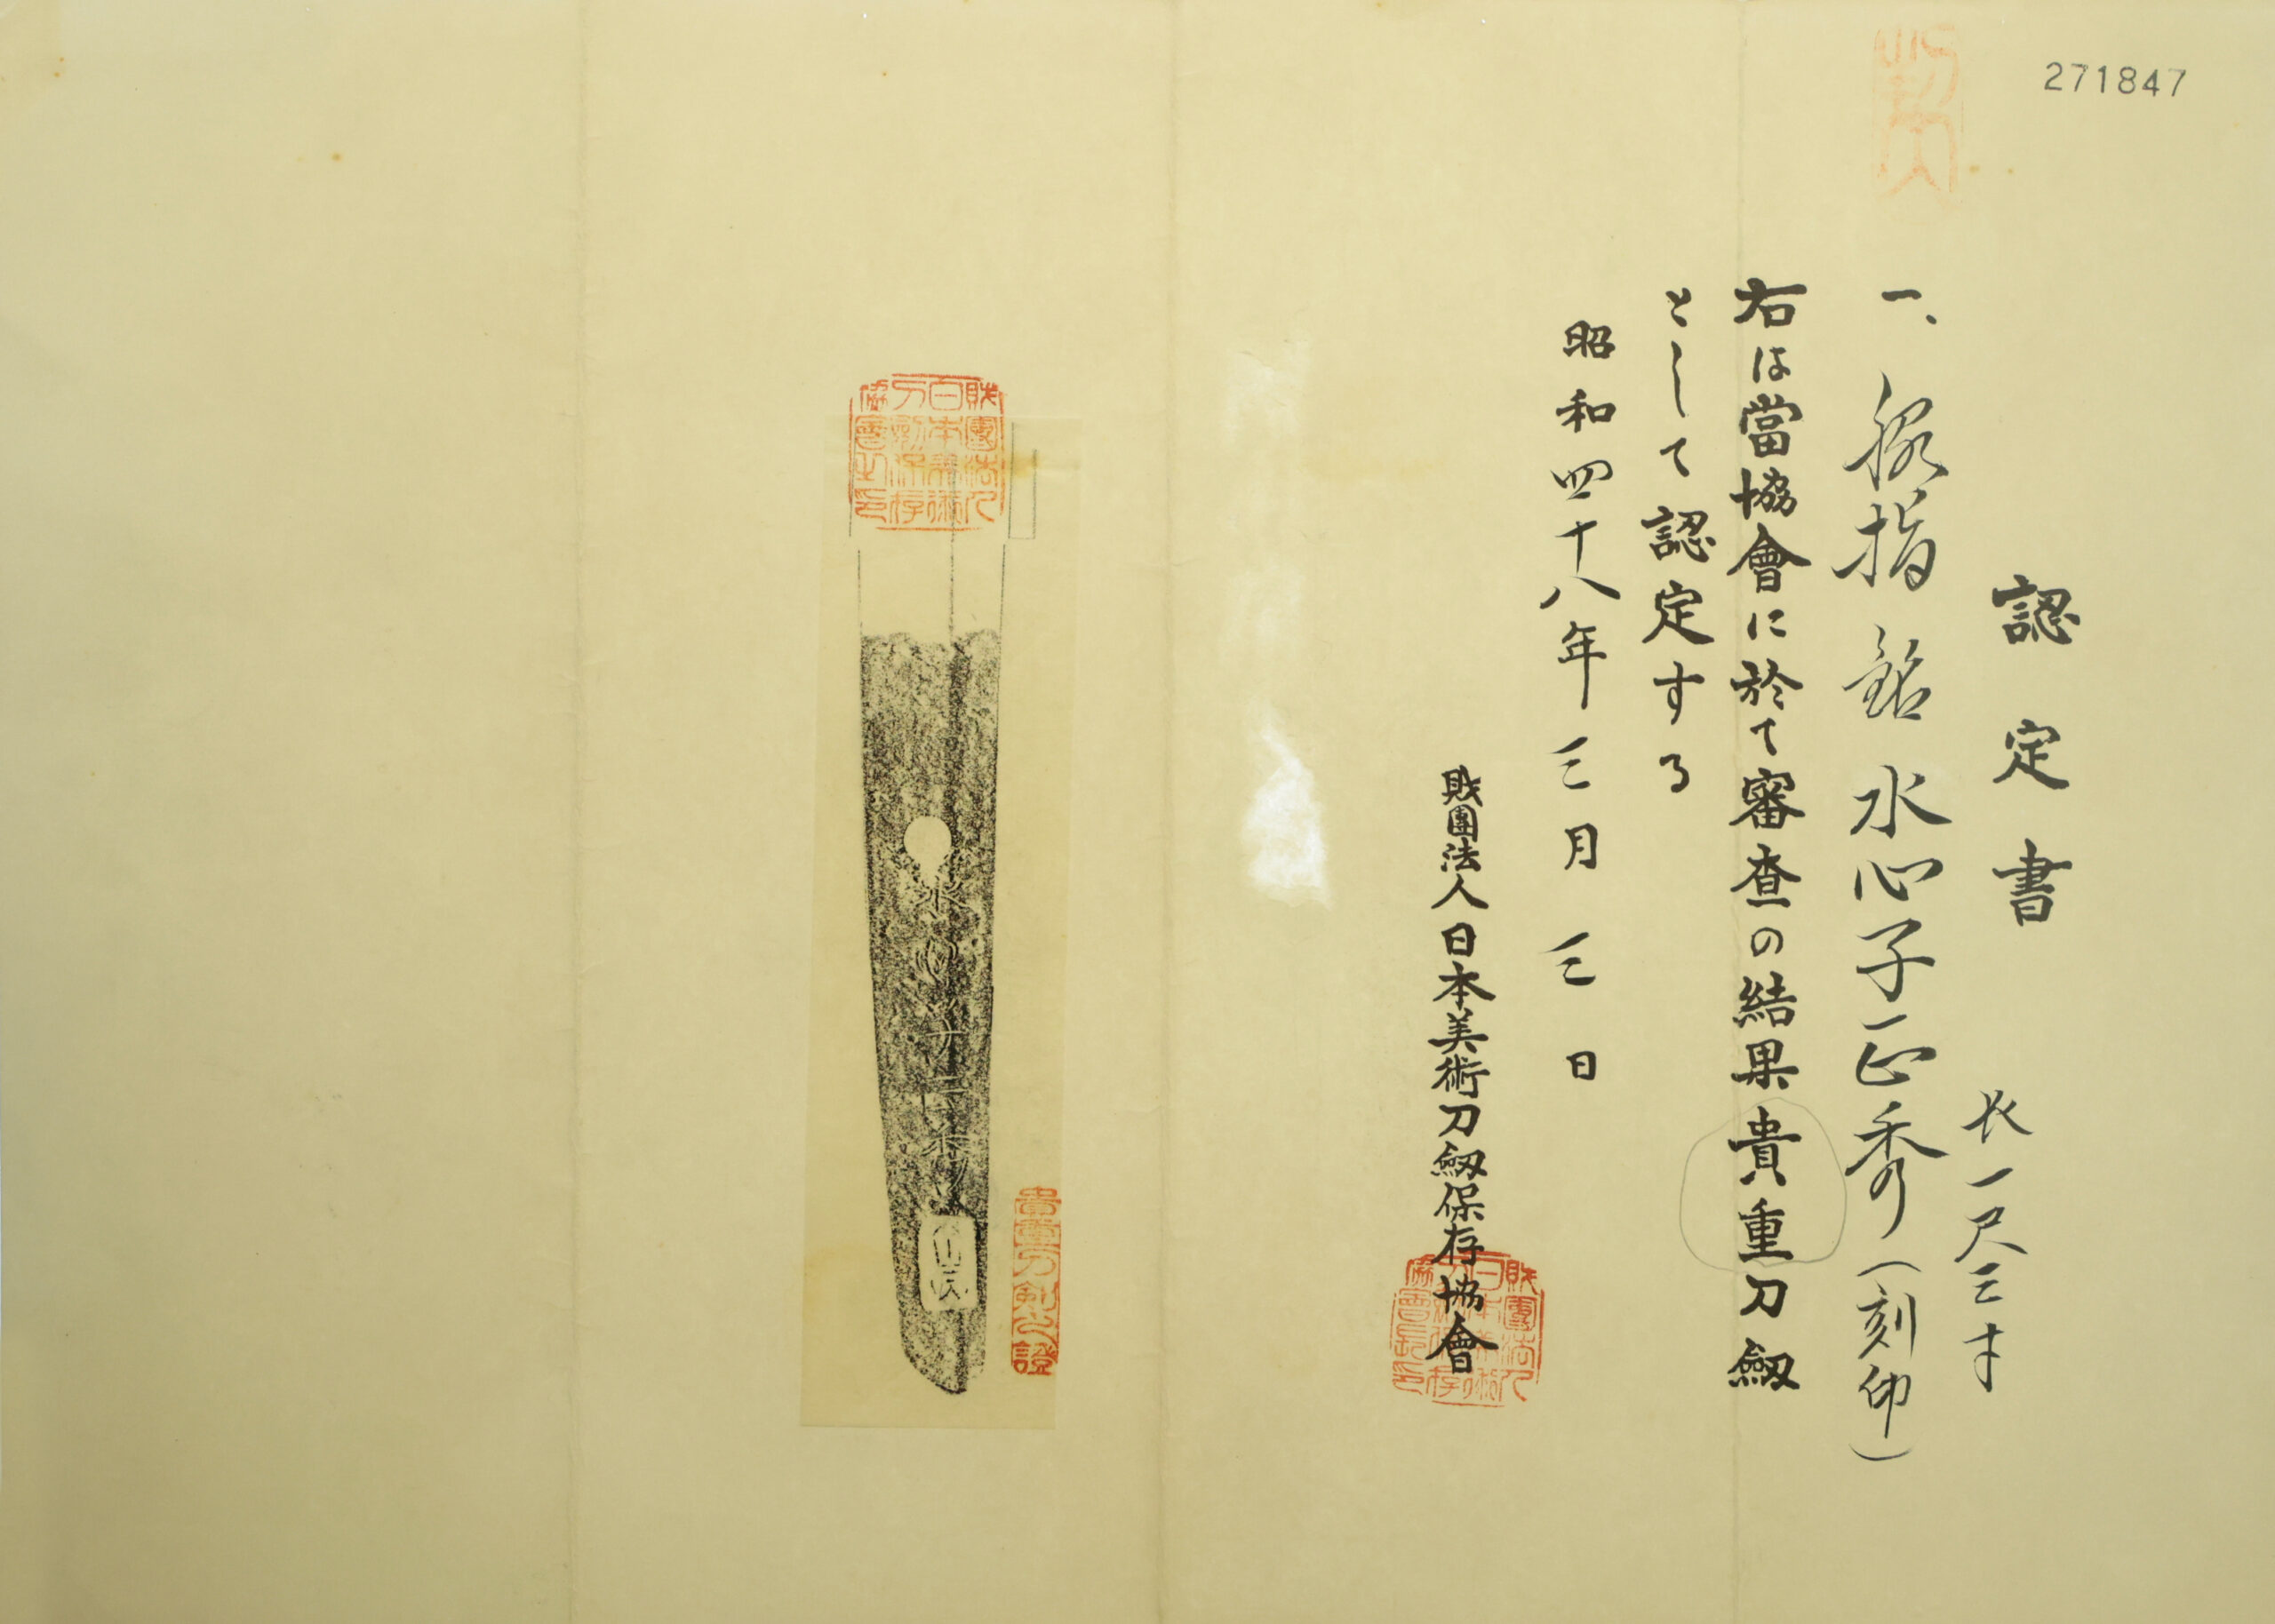 271847
認定書
長一尺三寸
一、脇指 銘 水心子正秀(刻印)
右は當協會に於て審査の結果貴重刀劔
として認定する
昭和四十八年三月三日
財團法人日本美術刀劔保存協會
財團法人日本美術刀劔保存協會長印
財團法人日本美術刀劔保存協會之印
水心子正秀
貴重刀剣之證